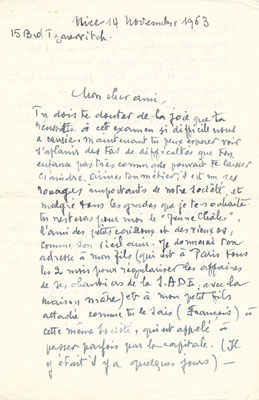 Nice 14 Novembre 1963
15 Bd Tzarevitch.
Mon cher ami,
Tu dois te douter de la joie que ta
réussite à cet examen si difficile nous
a causée. Maintenant tu peux espérer voir
s'aplanir des tas de difficultés que ton
enfance pas très commode pouvait te laisser
craindre, ainsi ton métier, il est un des
rouages importants de notre société, et
malgré tous les grades que je te souhaite
tu resteras pour moi le "jeune Chales",
l'ami des petits cailloux et des vieux os,
comme son vieil ami. Je donnerai ton
adresse à mon fils (qui est à Paris tous
les 2 mois pour régulariser les affaires
de ses chantiers de la S.A.D.E. avec la
maison mère) et à mon petit fils
attaché comme tu le sais (François) à
cette même société, qui est appelé à
passer parfois par la capitale. (Il
y était il y a quelques jours) —